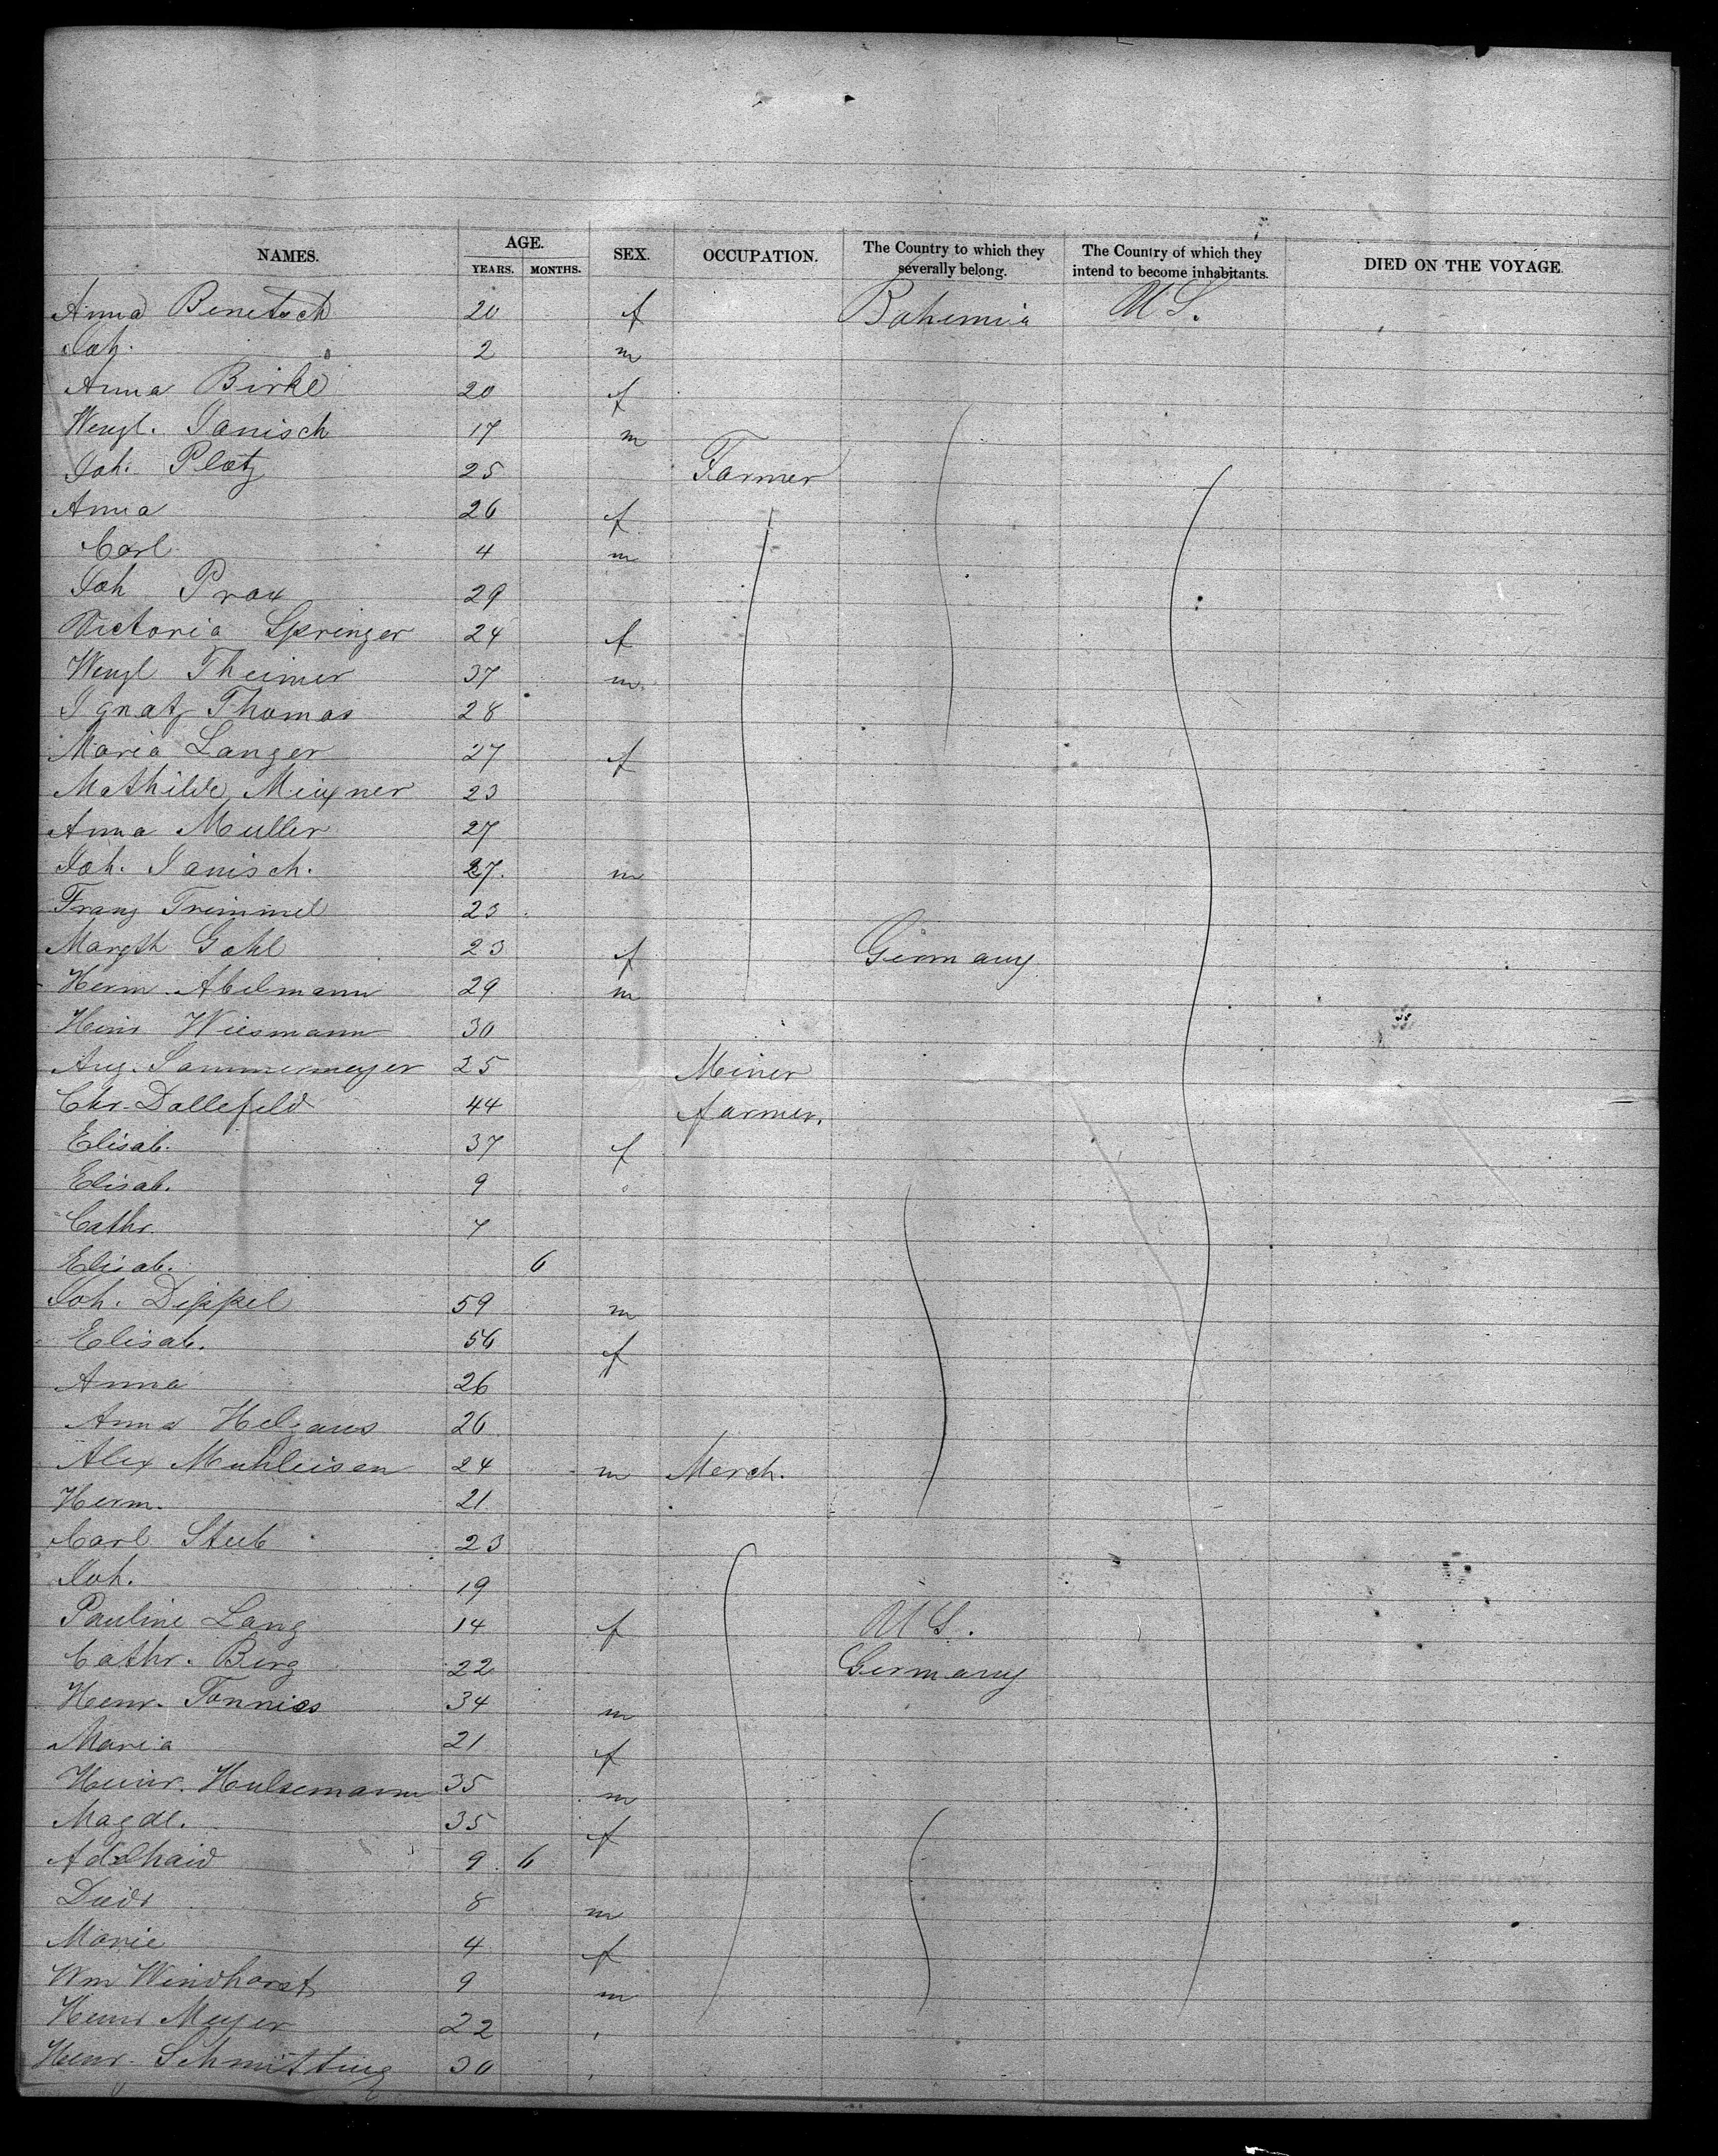 NAMES. AGE. SEX. OCCUPATION. The Country to which they severally belong. The Country of which they intend to become inhabitants. DIED ON THE VOYAGE
YEARS. MONTHS.
Anna Benetsch 20 f Bohemia U S.
Joh. 2 m
Anna Birke 20 f
Wenzl. Janisch 17 m
Joh. Platz 25 Farmer
Anna 26 f
Carl 4 m
Joh Prax 29
Victoria Springer 24 f
Wenzl Theimer 37 m
Ignatz Thomas 28
Maria Langer 27 f
Mathilde Meixner 23
Anna Muller 27
Joh. Janisch. 27. m
Franz Trimmel 23
Margth Gohl 23 f Germany
Herm. Abelmann 29 m
Heinr Wiesmann 30
Aug. Sammermeyer 25 Miner
Chr. Dallefeld 44 farmer.
Elisab. 37 f
Elisab. 9
Cathr. 7
Elisab. 6
Joh. Dippel 59 m
Elisab. 56 f
Anna 26
Anna Helgans 26
Alex Muhleisen 24 m Merch.
Herm. 21
Carl Steub 23
Joh. 19
Pauline Lang 14 f U S.
Cathr. Berg 22 Germany
Henr. Tonnies 34 m
Maria 21 f
Heinr. Hulsemann 35 m
Magdl. 35 f
Adelhaid 9 6
Diedr 8 m
Marie 4 f
Wm Windhorst 9 m
Heinr Meyer 22
Henr. Schmitting 30